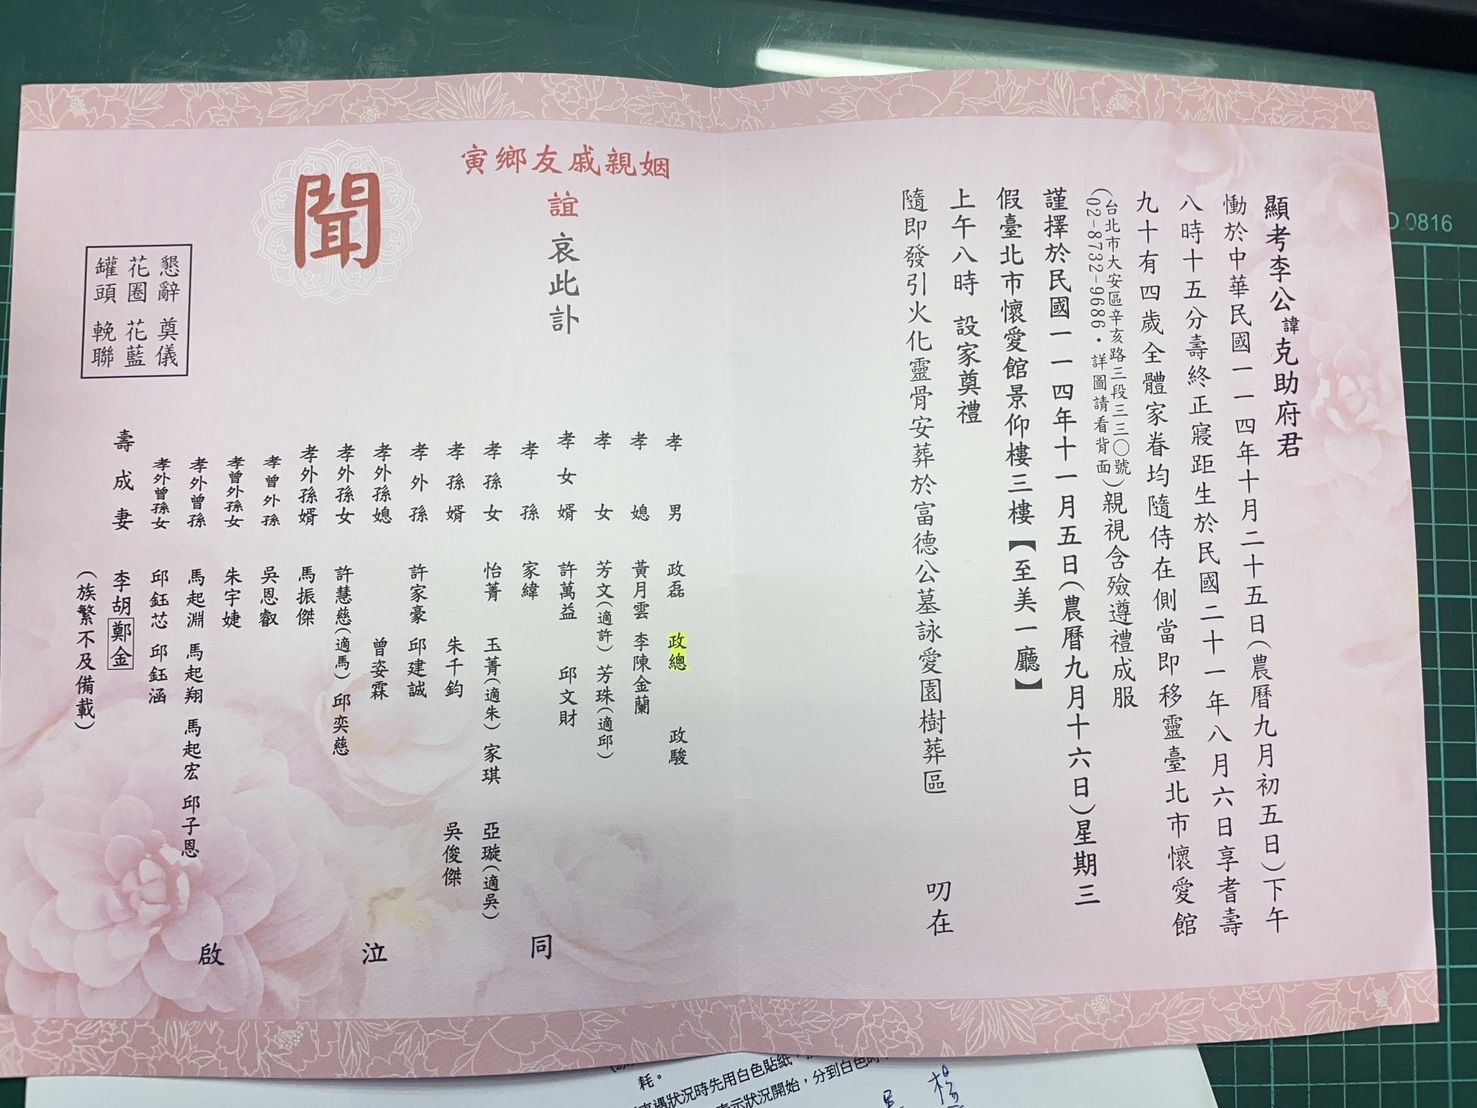 顯考李公諱克助府君
慟於中華民國一一四年十月二十五日(農曆九月初五日)下午
八時十五分壽終正寢距生於民國二十一年八月六日享耆壽
九十有四歲全體家眷均隨侍在側當即移靈臺北市懷愛館
(台北市大安區辛亥路三段三三〇號
02-8732-9686・詳圖請看背面)親視含殮遵禮成服
謹擇於民國一一四年十一月五日(農曆九月十六日)星期三
假臺北市懷愛館景仰樓三樓【至美一廳】
上午八時 設家奠禮
隨即發引火化靈骨安葬於富德公墓詠愛園樹葬區 叨在
姻親戚友鄉寅
誼哀此訃
聞
懇辭 奠儀
花圈 花藍
罐頭 輓聯
孝男 政磊 政總 政駿
孝媳 黃月雲 李陳金蘭
孝女 芳文(適許) 芳珠(適邱)
孝女婿 許萬益 邱文財
孝孫 家緯
孝孫女 怡菁 玉菁(適朱) 家琪 亞璇(適吳)
孝孫婿 朱千鈞 吳俊傑
孝外孫 許家豪 邱建誠
孝外孫媳 曾姿霖
孝外孫女 許慧慈(適馬) 邱奕慈
孝外孫婿 馬振傑
孝曾外孫 吳恩叡
孝曾外孫女 朱宇婕
孝外曾孫 馬起淵 馬起翔 馬起宏 邱子恩
孝外曾孫女 邱鈺芯 邱鈺涵
壽成妻 李胡鄭金
(族繁不及備載)
同 泣 啟
O.0816
耗。
狀況時先用白色貼紙，
示狀況開始，分到白色
楊